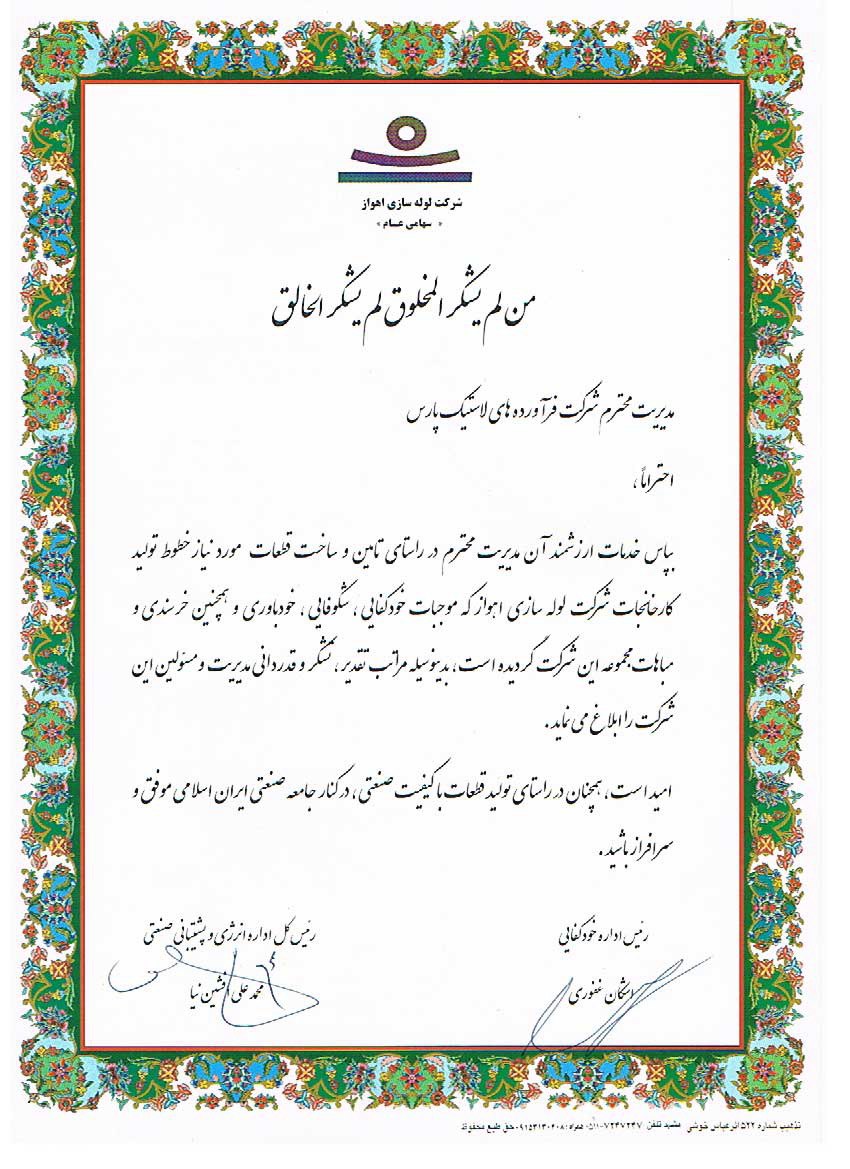 شرکت لوله سازی اهواز
« سهامی عـــام »
من لم یشکر المخلوق لم یشکر الخالق
مدیریت محترم شرکت فرآورده های لاستیک پارس
احتراماً ،
بپاس خدمات ارزشمند آن مدیریت محترم در راستای تامین و ساخت قطعات مورد نیاز خطوط تولید
کارخانجات شرکت لوله سازی اهواز که موجبات خودکفایی ، شکوفایی ، خودباوری و همچنین خرسندی و
مباهات مجموعه این شرکت گردیده است، بدینوسیله مراتب تقدیر ، تشکر و قدردانی مدیریت و مسئولین این
شرکت را ابلاغ می نماید .
امید است، همچنان در راستای تولید قطعات با کیفیت صنعتی ، در کنار جامعه صنعتی ایران اسلامی موفق و
سرافراز باشید .
رئیس اداره خودکفایی
اشکان غفوری
رئیس کل اداره انرژی و پشتیبانی صنعتی
محمد علی افشین نیا
تذهیب شماره ۵۲۲ اثر عباس خوشی مشهد تلفن ۷۲۴۷۲۴۷-۰۵۱۱ همراه: ۰۹۱۵۳۱۳۰۴۰۸ حق طبع محفوظ